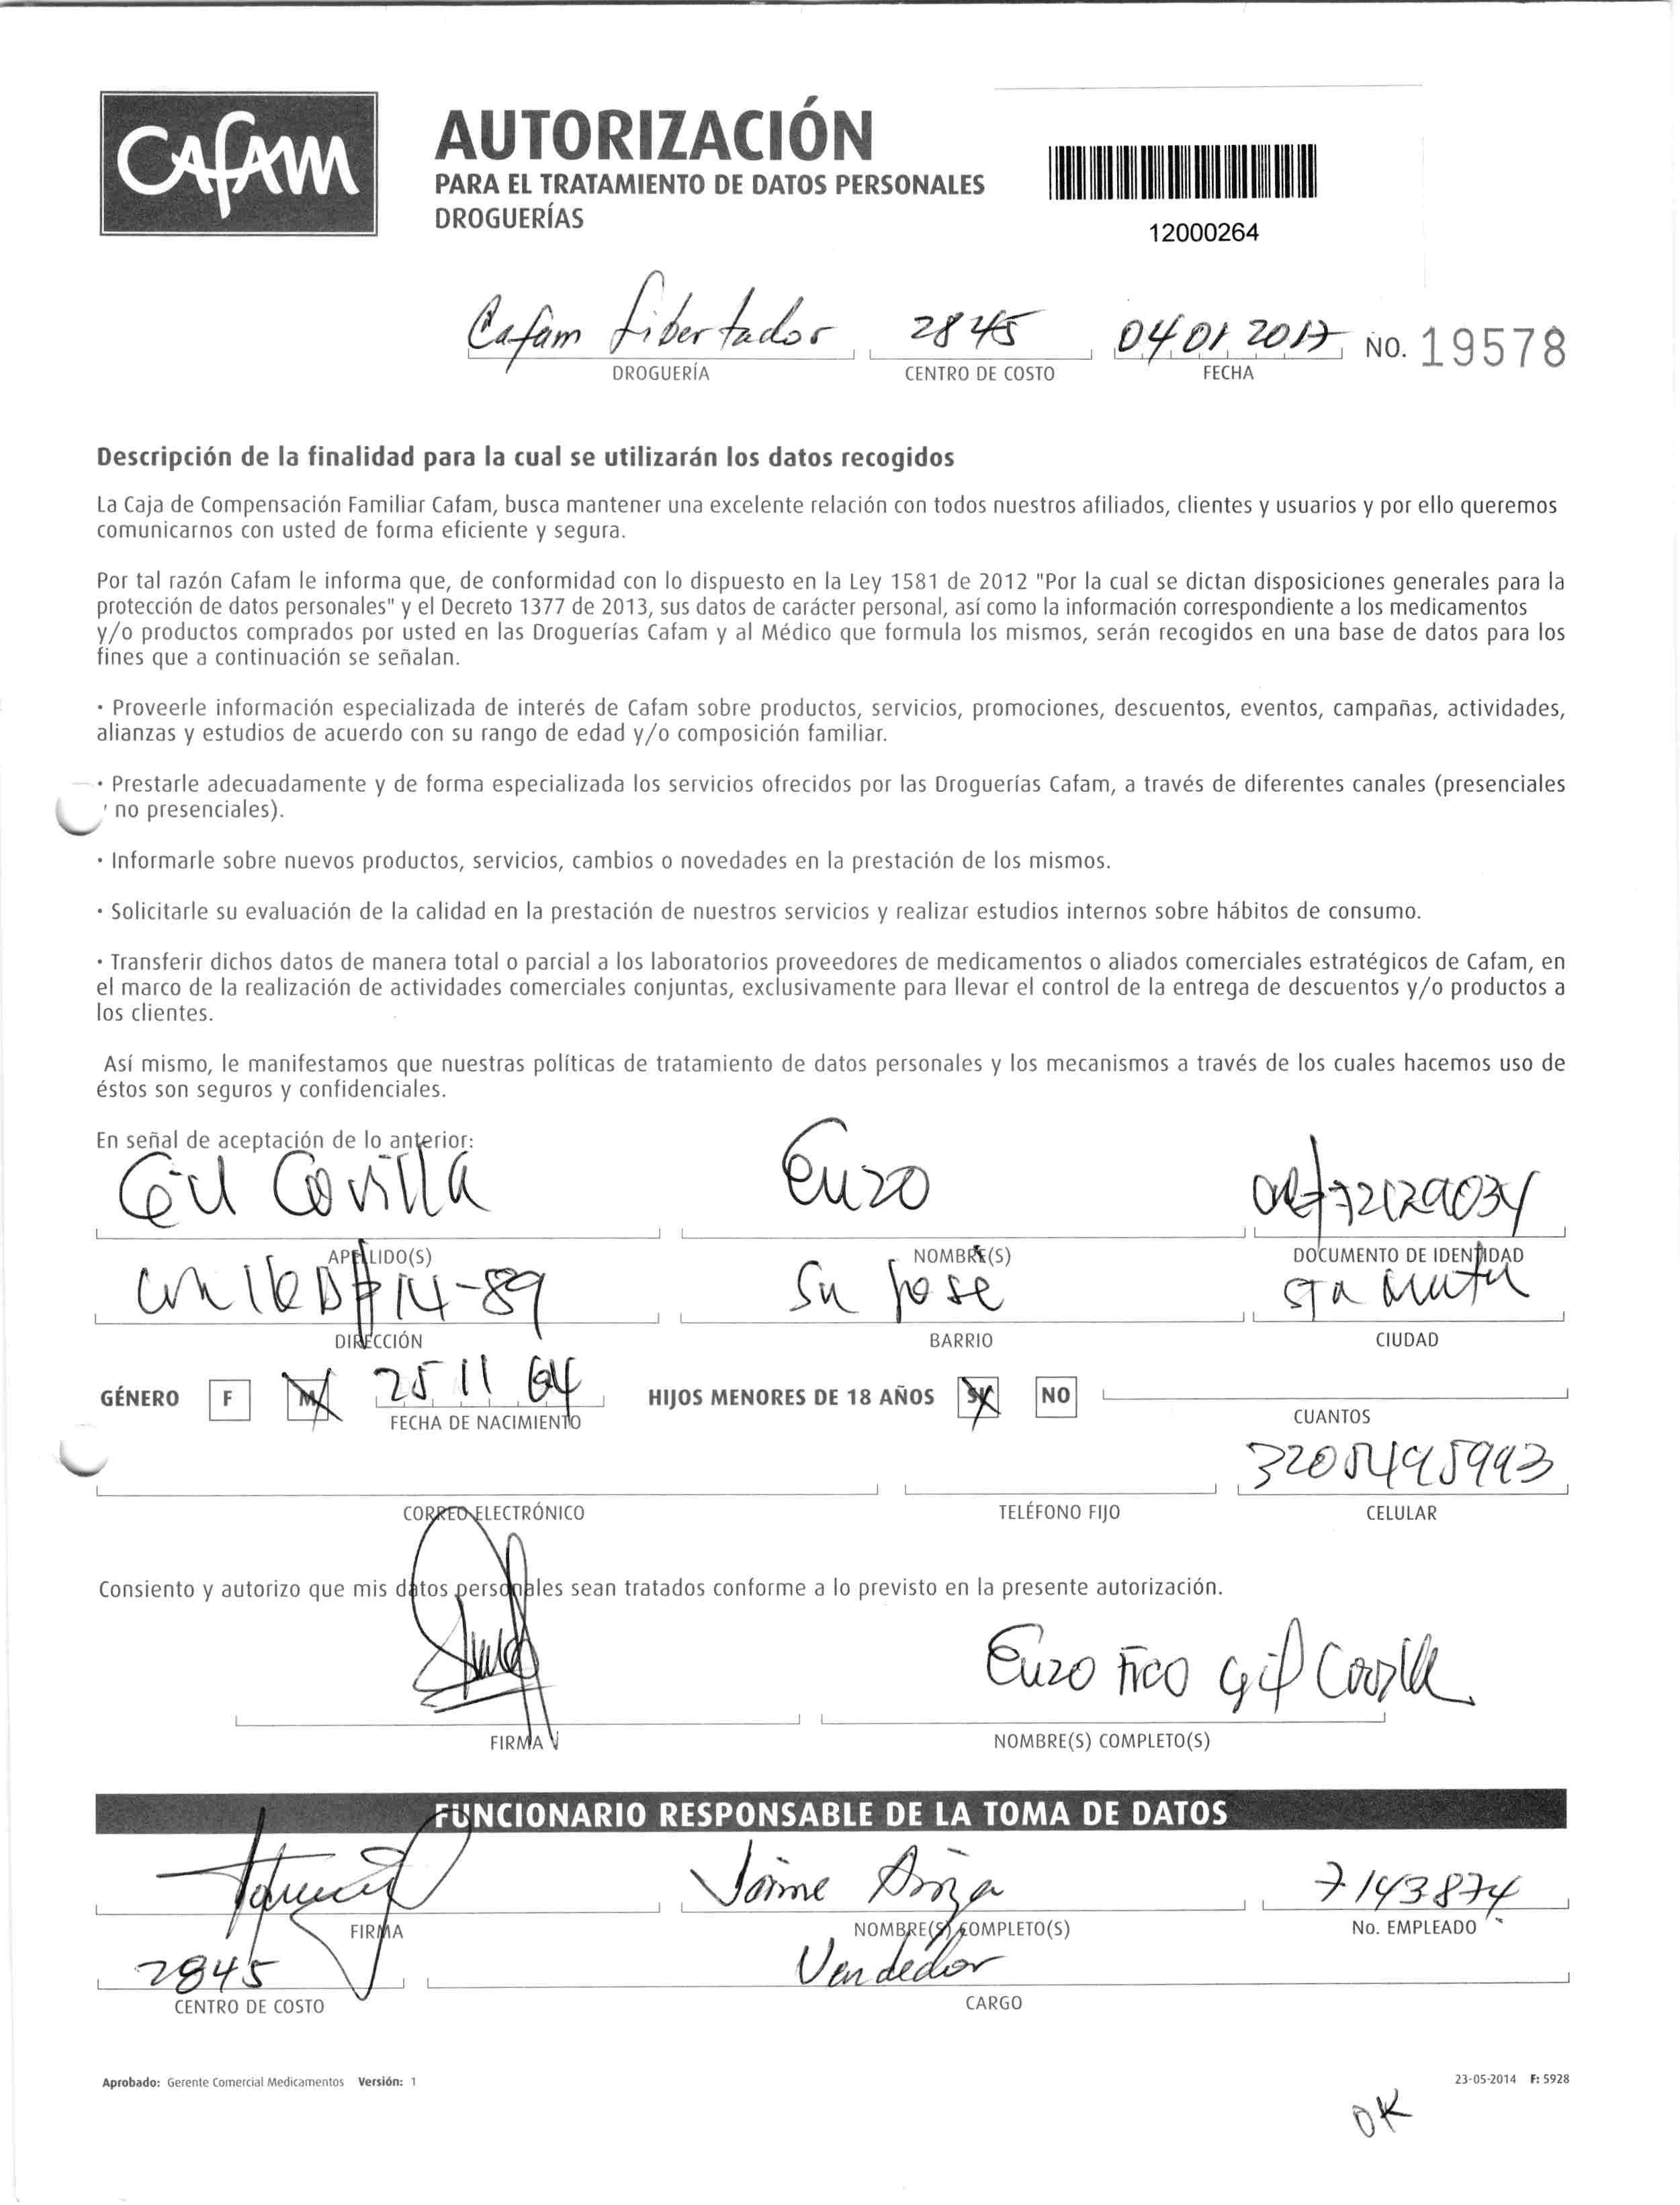 Cafam
AUTORIZACIÓN
PARA EL TRATAMIENTO DE DATOS PERSONALES
DROGUERÍAS
12000264
Cafam Libertador 2845 04 01 2017 NO. 19578
DROGUERÍA CENTRO DE COSTO FECHA
Descripción de la finalidad para la cual se utilizarán los datos recogidos
La Caja de Compensación Familiar Cafam, busca mantener una excelente relación con todos nuestros afiliados, clientes y usuarios y por ello queremos
comunicarnos con usted de forma eficiente y segura.
Por tal razón Cafam le informa que, de conformidad con lo dispuesto en la Ley 1581 de 2012 "Por la cual se dictan disposiciones generales para la
protección de datos personales" y el Decreto 1377 de 2013, sus datos de carácter personal, así como la información correspondiente a los medicamentos
y/o productos comprados por usted en las Droguerías Cafam y al Médico que formula los mismos, serán recogidos en una base de datos para los
fines que a continuación se señalan.
· Proveerle información especializada de interés de Cafam sobre productos, servicios, promociones, descuentos, eventos, campañas, actividades,
alianzas y estudios de acuerdo con su rango de edad y/o composición familiar.
· Prestarle adecuadamente y de forma especializada los servicios ofrecidos por las Droguerías Cafam, a través de diferentes canales (presenciales
no presenciales).
· Informarle sobre nuevos productos, servicios, cambios o novedades en la prestación de los mismos.
· Solicitarle su evaluación de la calidad en la prestación de nuestros servicios y realizar estudios internos sobre hábitos de consumo.
· Transferir dichos datos de manera total o parcial a los laboratorios proveedores de medicamentos o aliados comerciales estratégicos de Cafam, en
el marco de la realización de actividades comerciales conjuntas, exclusivamente para llevar el control de la entrega de descuentos y/o productos a
los clientes.
Así mismo, le manifestamos que nuestras políticas de tratamiento de datos personales y los mecanismos a través de los cuales hacemos uso de
éstos son seguros y confidenciales.
En señal de aceptación de lo anterior:
Gil Covilla Enzo
APELLIDO(S) NOMBRE(S) DOCUMENTO DE IDENTIDAD
14-89 Sn Jose Sta Marta
DIRECCIÓN BARRIO CIUDAD
GÉNERO F M 25 11 64 HIJOS MENORES DE 18 AÑOS SI NO
FECHA DE NACIMIENTO CUANTOS
CORREO ELECTRÓNICO TELÉFONO FIJO CELULAR
Consiento y autorizo que mis datos personales sean tratados conforme a lo previsto en la presente autorización.
Enzo Fco Gil Covilla
FIRMA NOMBRE(S) COMPLETO(S)
FUNCIONARIO RESPONSABLE DE LA TOMA DE DATOS
Jaime Ariza 7143874
FIRMA NOMBRE(S) COMPLETO(S) No. EMPLEADO
2845 Vendedor
CENTRO DE COSTO CARGO
Aprobado: Gerente Comercial Medicamentos Versión: 1 23-05-2014 F: 5928
OK